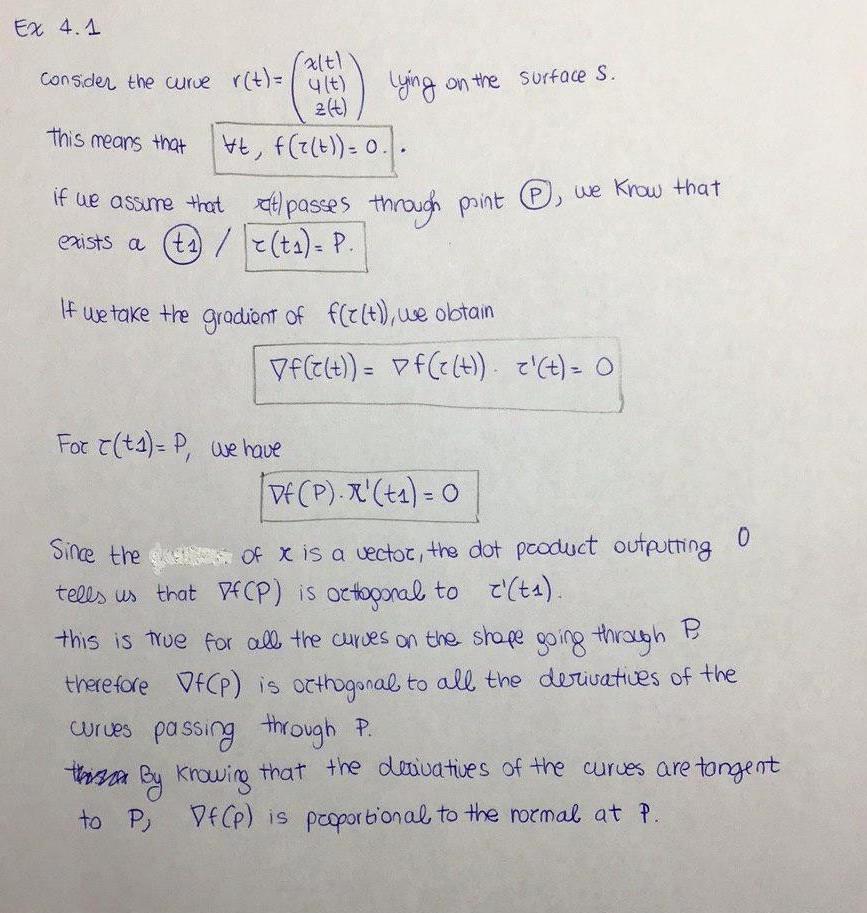 Ex 4.1
consider the curve r(t) = (x(t) y(t) z(t)) lying on the surface S.
this means that ∀t, f(r(t)) = 0. .
if we assume that r(t) passes through point P, we know that
exists a t1 / r(t1) = P.
If we take the gradient of f(r(t)), we obtain
∇f(r(t)) = ∇f(r(t)) · r'(t) = 0
For r(t1) = P, we have
∇f(P) · r'(t1) = 0
Since the of x is a vector, the dot product outputting 0
tells us that ∇f(P) is orthogonal to r'(t1).
this is true for all the curves on the shape going through P
therefore ∇f(P) is orthogonal to all the derivatives of the
curves passing through P.
By knowing that the derivatives of the curves are tangent
to P, ∇f(P) is proportional to the normal at P.